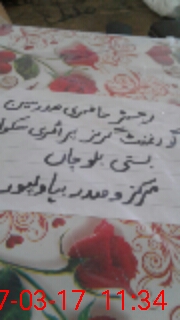 رجسٹر حاضری مدرسین
گورنمنٹ گرلز پرائمری سکول
بستی بلوچاں
مرکز و صدر بہاولپور
7-03-17 11.34